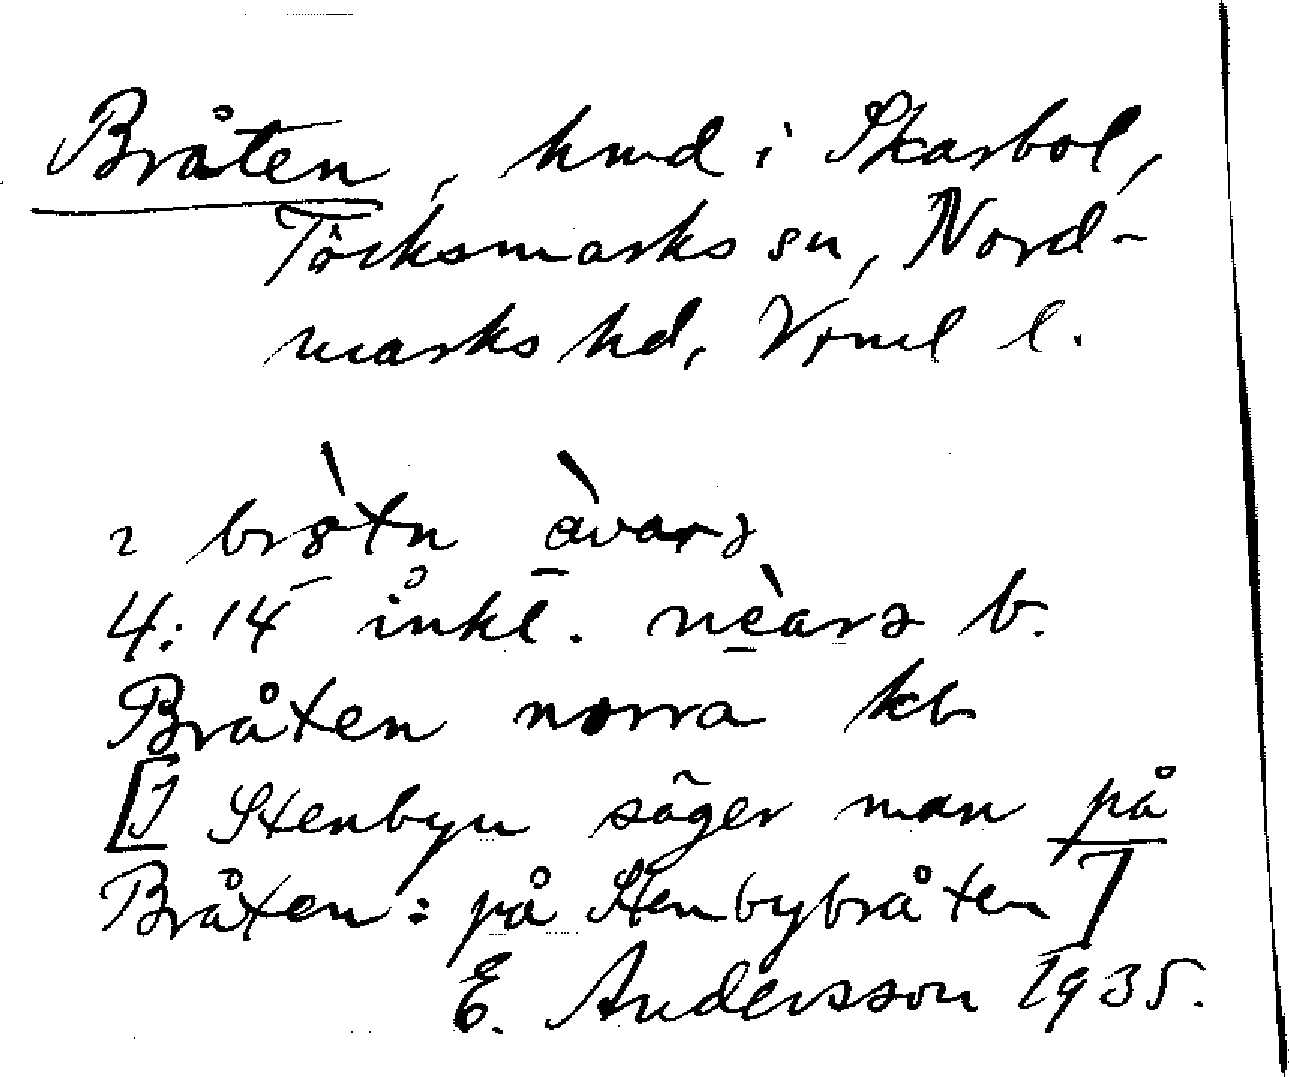 Bråten, hmd i Skarbol,
Töcksmarks sn, Nord-
marks hd, Vrml l.
ı bròtn àvarə
4:14 inkl. nèarə b.
Bråten norra kb
[I Stenbyn säger man på
Bråten: på Stenbybråten]
E. Andersson 1935.